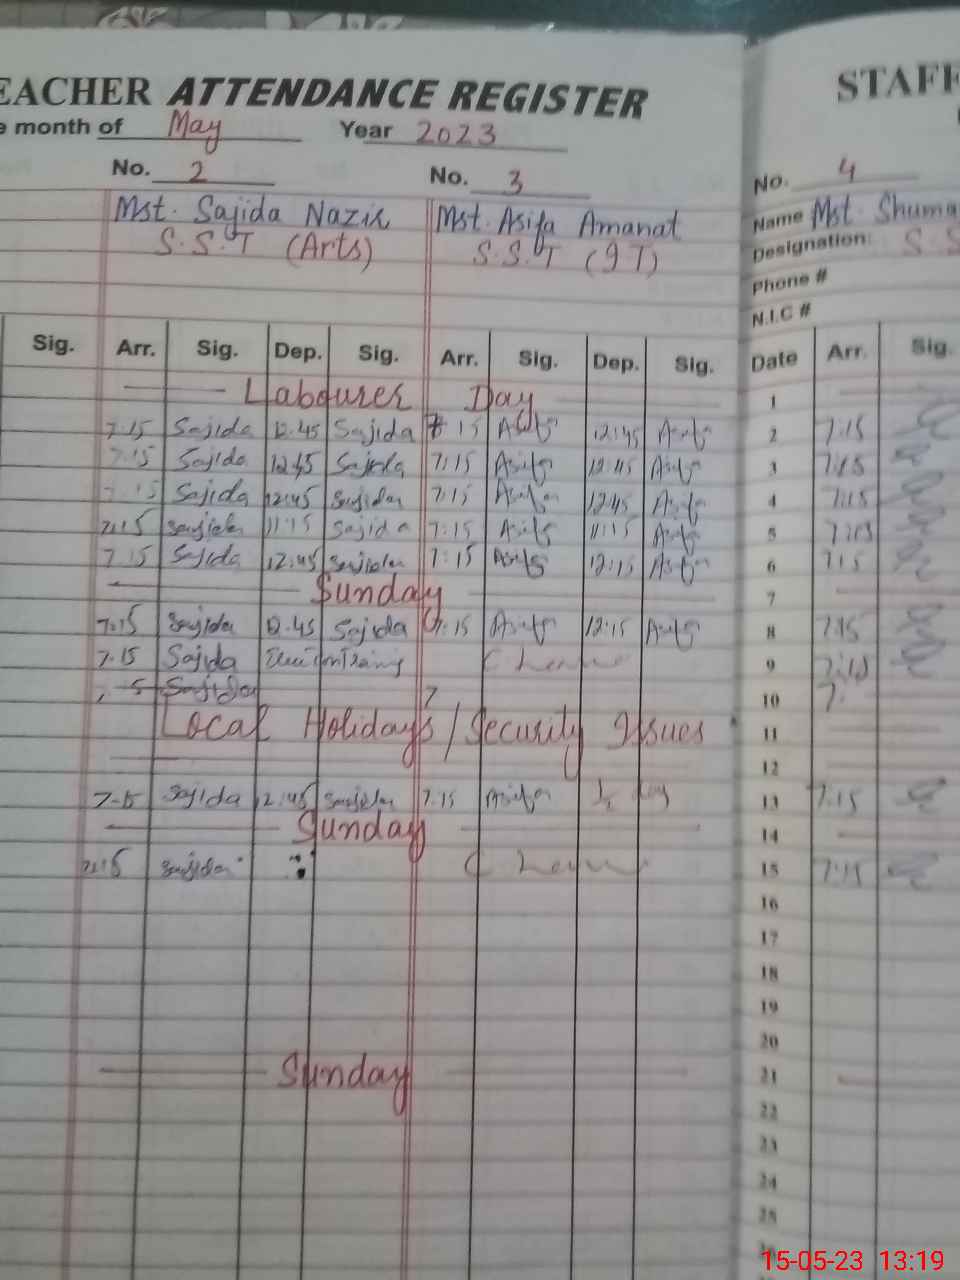 EACHER ATTENDANCE REGISTER STAFF
e month of May Year 2023
No. 2 No. 3 No. 4
Mst. Sajida Nazir Mst. Asifa Amanat Name Mst. Shuma
S.S.T (Arts) S.S.T (IT) Designation: S.S
Phone #
N.I.C #
Sig. Arr. Sig. Dep. Sig. Arr. Sig. Dep. Sig. Date Arr. Sig.
Labourer Day 1
7.15 Sajida 12.45 Sajida 7 15 Asifa 12:45 Asifa 2 7.15
7.15 Sajida 12.45 Sajida 7:15 Asifa 12:45 Asifa 3 7:15
7.15 Sajida 12:45 Sajida 7:15 Asifa 12:45 Asifa 4 7:15
7:15 Sajida 11:15 Sajida 7:15 Asifa 11:15 Asifa 5 7:15
7.15 Sajida 12:45 Sajida 7:15 Asifa 12:15 Asifa 6 7:15
Sunday 7
7:15 Sajida 12.45 Sajida 7:15 Asifa 12:15 Asifa 8 7:15
7.15 Sajida C Leave 9 7:15
Sajida 7 10 7.
Local Holidays / Security Issues 11
12
7-15 Sajida 12:45 Sajida 7:15 Asifa 13 7.15
Sunday 14
7:15 Sajida C Leave 15 7:15
16
17
18
19
20
Sunday 21
22
23
24
25
15-05-23 13:19